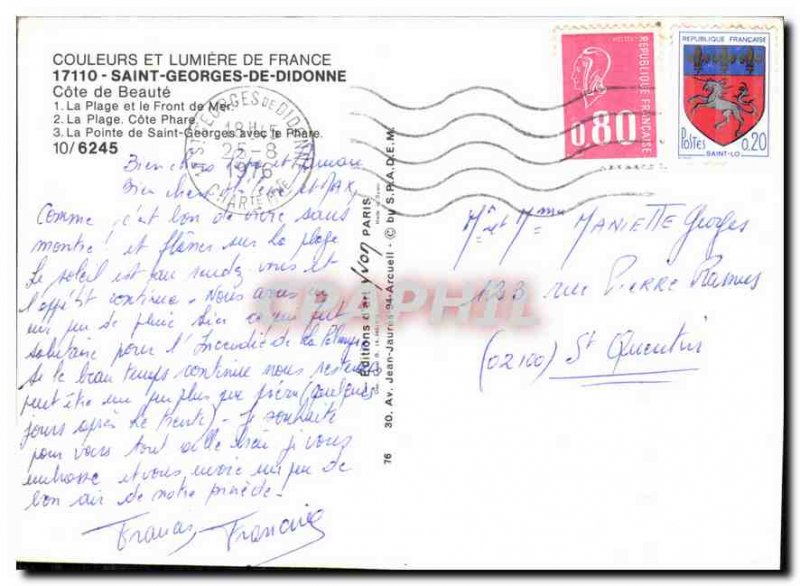 COULEURS ET LUMIÈRE DE FRANCE
17110 - SAINT-GEORGES-DE-DIDONNE
Côte de Beauté
1. La Plage et le Front de Mer.
2. La Plage. Côte Phare.
3. La Pointe de Saint-Georges avec le Phare.
10/6245
ST GEORGES DE DIDONNE
18H15
25-8
1976
CHARTE MME
Bien chers et
Bien chers et MAX,
Comme c'est bon de vivre sans
montre! et flâner sur la plage
Le soleil est au rendez vous et
l'appétit continue. Nous avons eu
un peu de pluie bien
solitaire pour l'Incendie de la
Si le beau temps continue nous resterons
peut être un peu plus que prévu (quelques
jours après le trente). Je souhaite
pour vous tout aille bien je vous
embrasse et vous envoie un peu de
bon air de notre pinède!
Francis Francine
Editions d'art YVON PARIS
30, Av. Jean-Jaurès 94-Arcueil - © by S.P.A.D.E.M.
76
RÉPUBLIQUE FRANÇAISE
0.80
REPUBLIQUE FRANÇAISE
Postes 0,20
SAINT-LO
Mr et Mme MANIETTE Georges
123 rue Pierre Ramus
(02100) St Quentin
CPAPHIL